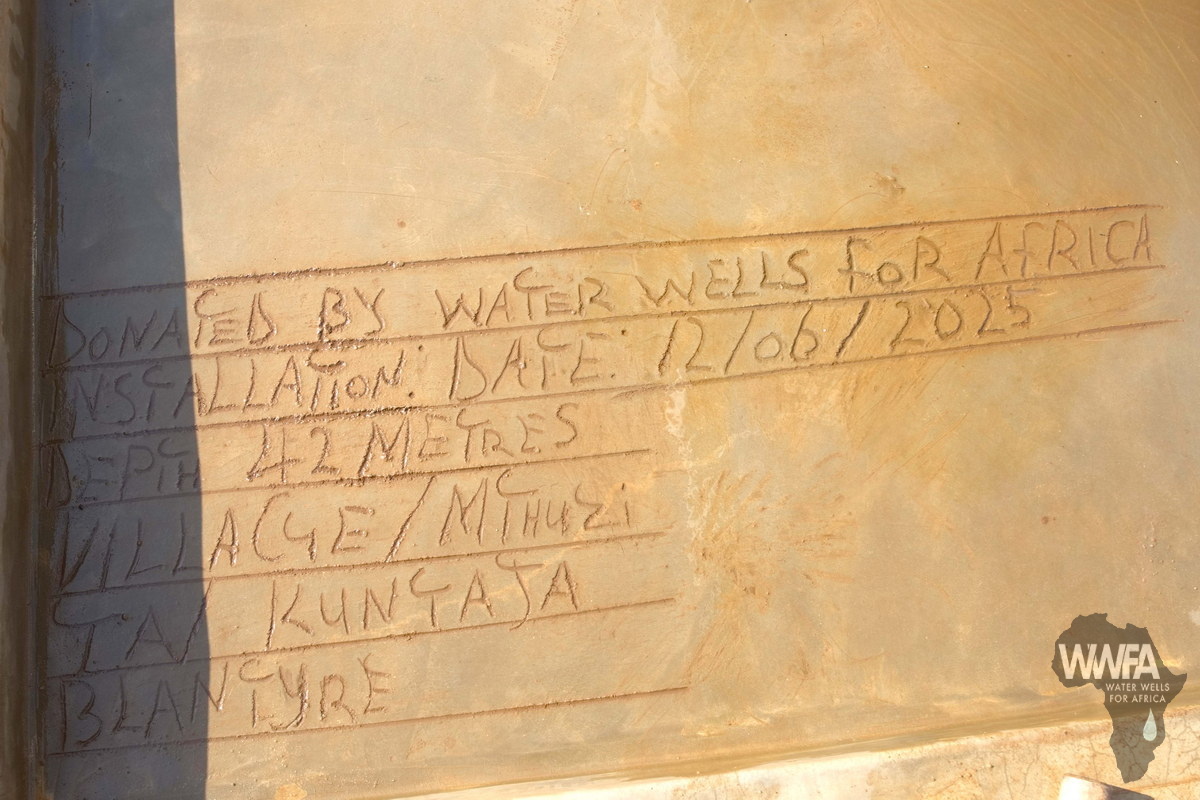 DONATED BY WATER WELLS FOR AFRICA
INSTALLATION: DATE: 12/06/2025
DEPTH 42 METRES
VILLAGE/MTHUZI
TA/ KUNTAJA
BLANTYRE
WWFA
WATER WELLS
FOR AFRICA